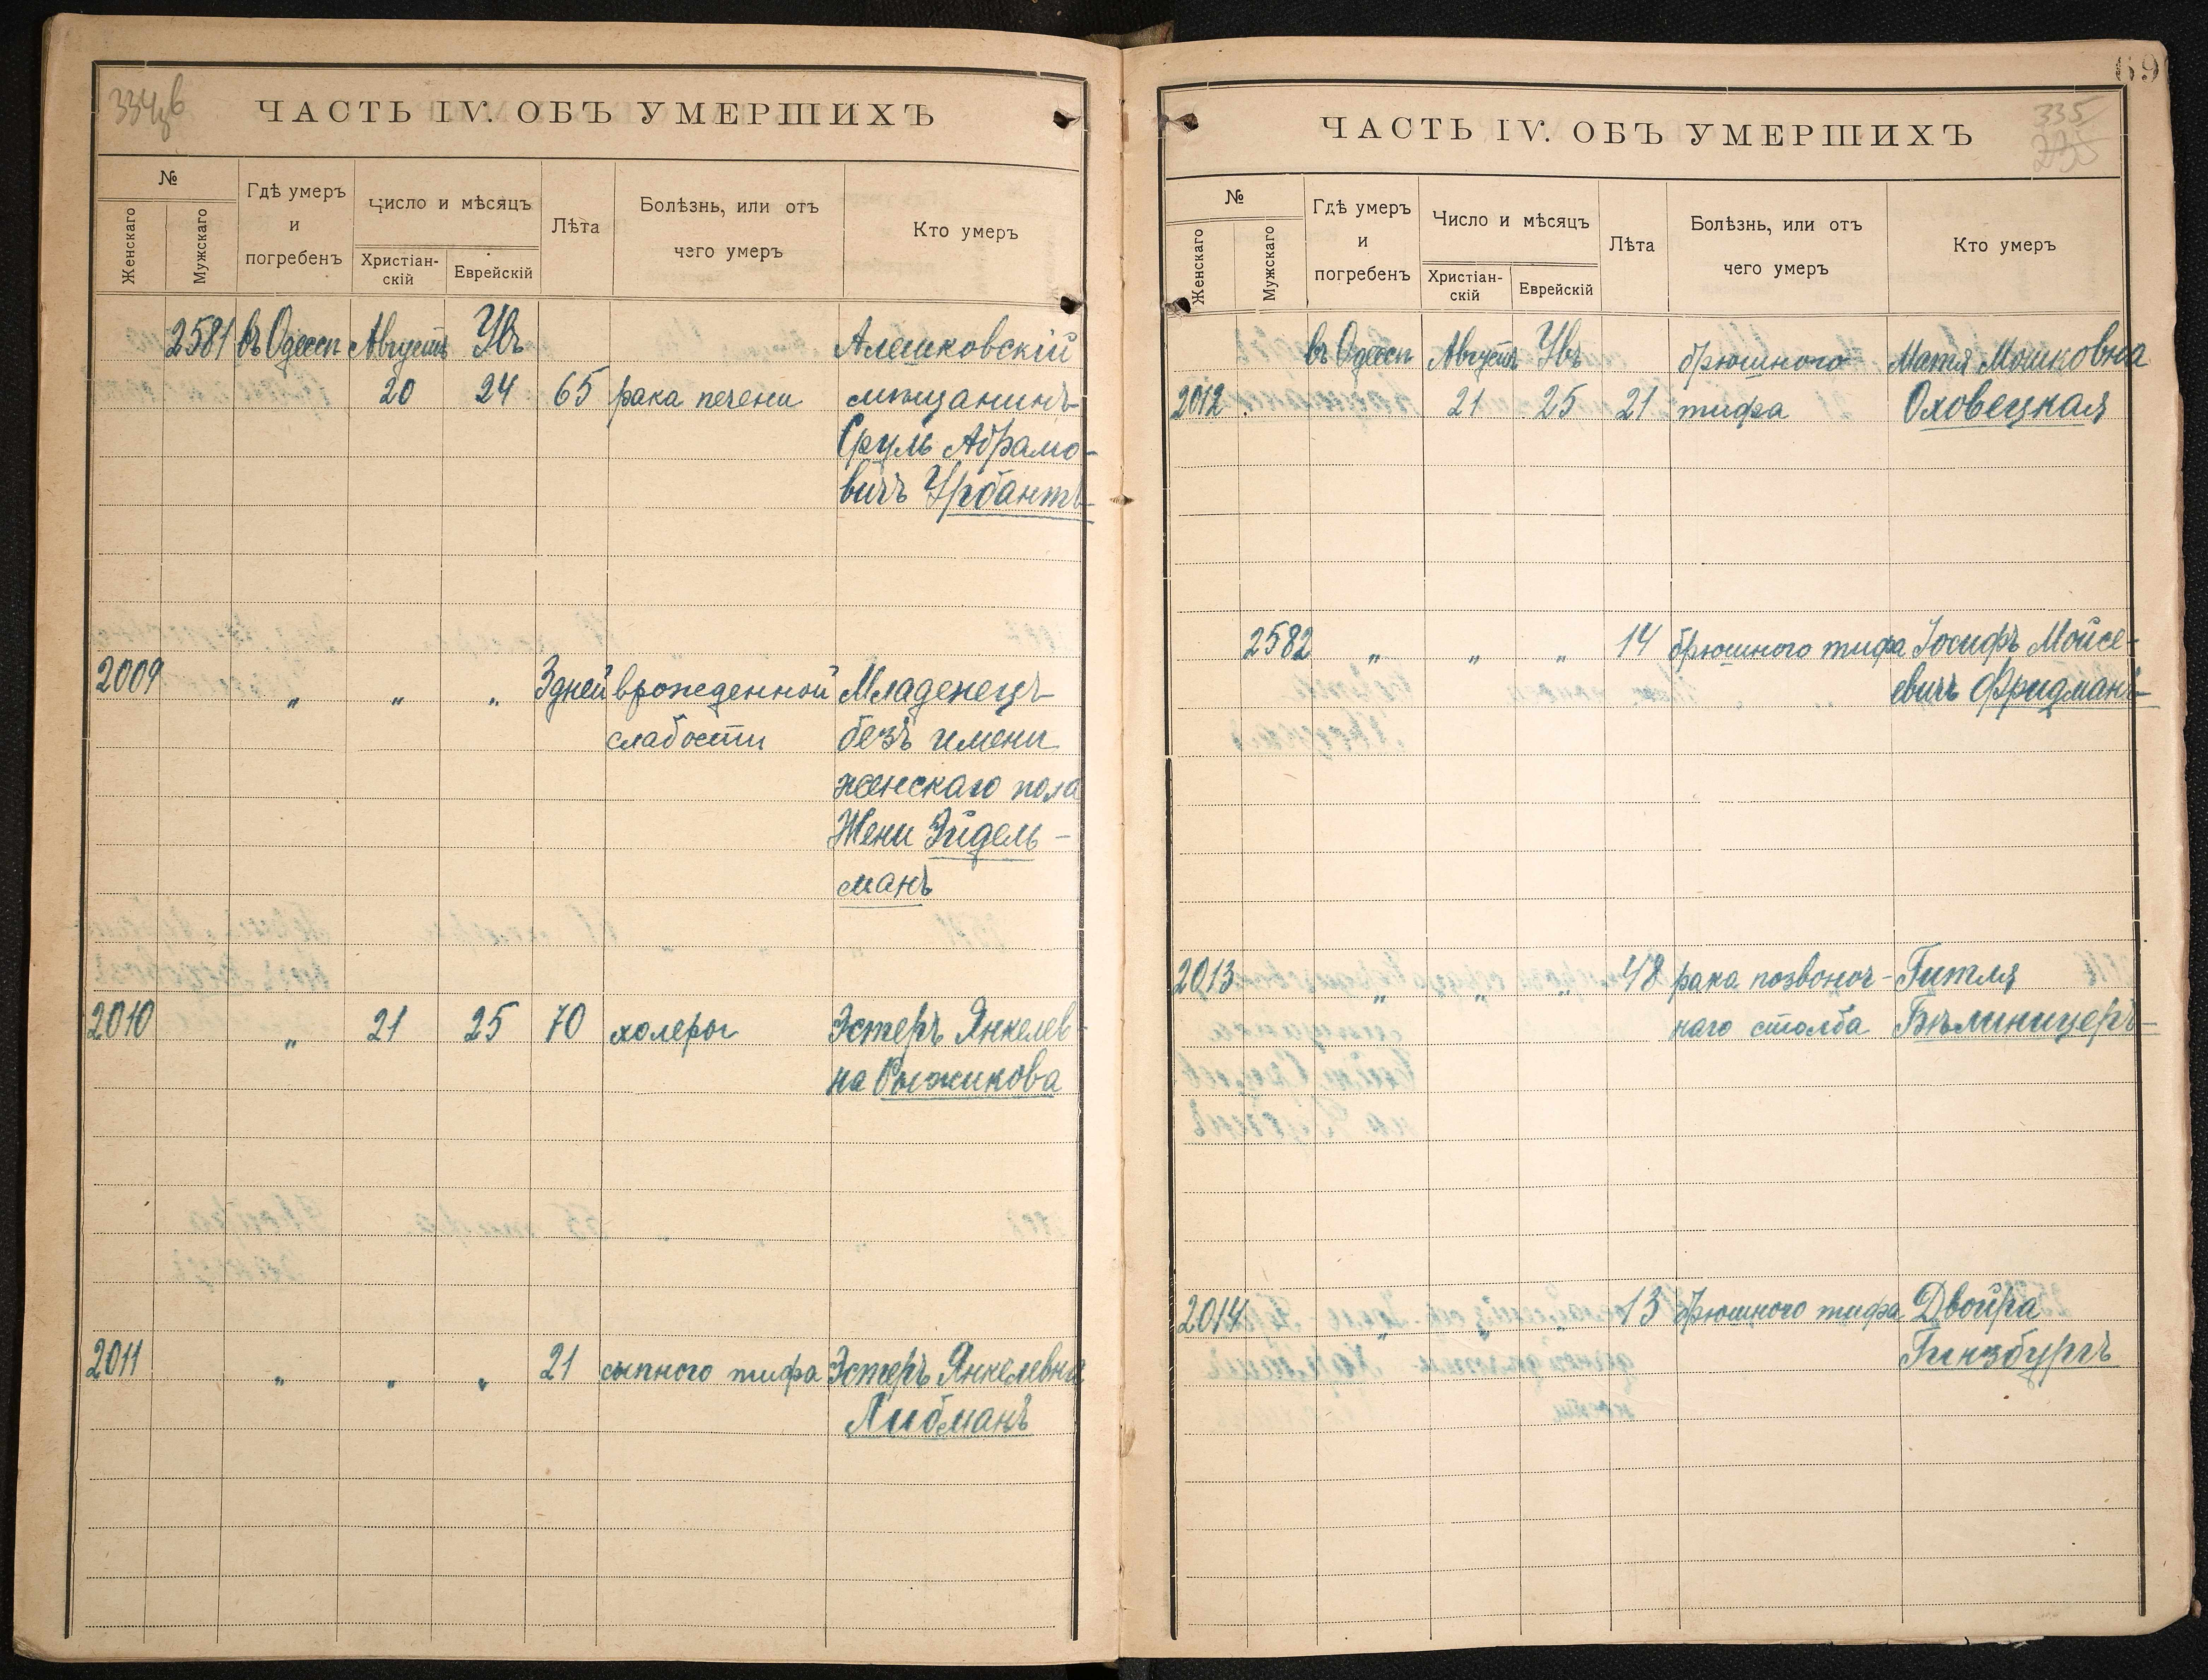 334 в
ЧАСТЬ IV. ОБЪ УМЕРШИХЪ
№
Женскаго
Мужскаго
Гдѣ умеръ
и
погребенъ
Число и мѣсяцъ
Христіан-
скій
Еврейскій
Лѣта
Болѣзнь, или отъ
чего умеръ
Кто умеръ
2581 въ Одессѣ Августъ Увъ Алешковскій
20 24 65 рака печени мѣщанинъ
Сруль Абрамо-
вичъ Урбантъ
2009 „ „ „ 3 дней врожденной Младенецъ
слабости безъ имени
женскаго пола
Жени Эйдель-
манъ
2010 „ 21 25 70 холеры Эстеръ Янкелев-
на Рыжикова
2011 „ „ „ 21 сыпного тифа Эстеръ Янкелевна
Либманъ
69
335
235
ЧАСТЬ IV. ОБЪ УМЕРШИХЪ
№
Женскаго
Мужскаго
Гдѣ умеръ
и
погребенъ
Число и мѣсяцъ
Христіан-
скій
Еврейскій
Лѣта
Болѣзнь, или отъ
чего умеръ
Кто умеръ
въ Одессѣ Августъ Увъ брюшного Матя Мошковна
2012 21 25 21 тифа Оховецкая
2582 „ „ „ 14 брюшного тифа Іосифъ Мойсе-
евичъ Фридманъ
2013 „ „ „ 48 рака позвоноч- Гитля
наго столба Бѣлиницеръ
2014 „ „ „ 13 брюшного тифа Двойра
Гинзбургъ